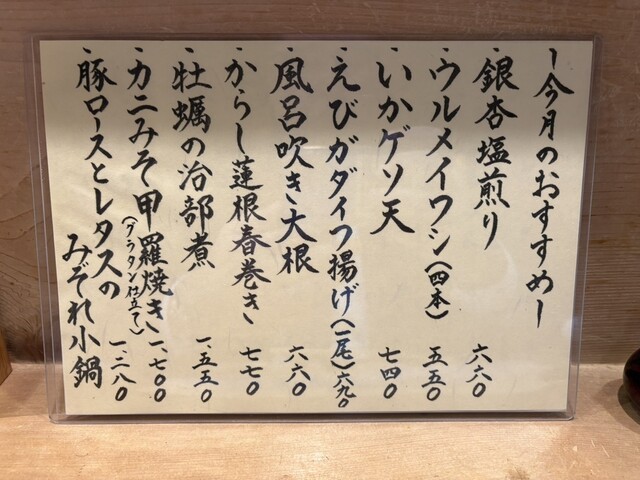 ー今月のおすすめー
・銀杏塩煎り 六六〇
・ウルメイワシ(四本) 五五〇
・いかゲソ天 七四〇
・えびガダイフ揚げ(一尾) 六九〇
・風呂吹き大根 六六〇
・からし蓮根春巻き 七七〇
・牡蠣の治部煮 一、五五〇
・カニみそ甲羅焼き 一、七〇〇
(グラタン仕立て)
・豚ロースとレタスの
みぞれ小鍋 一、二八〇